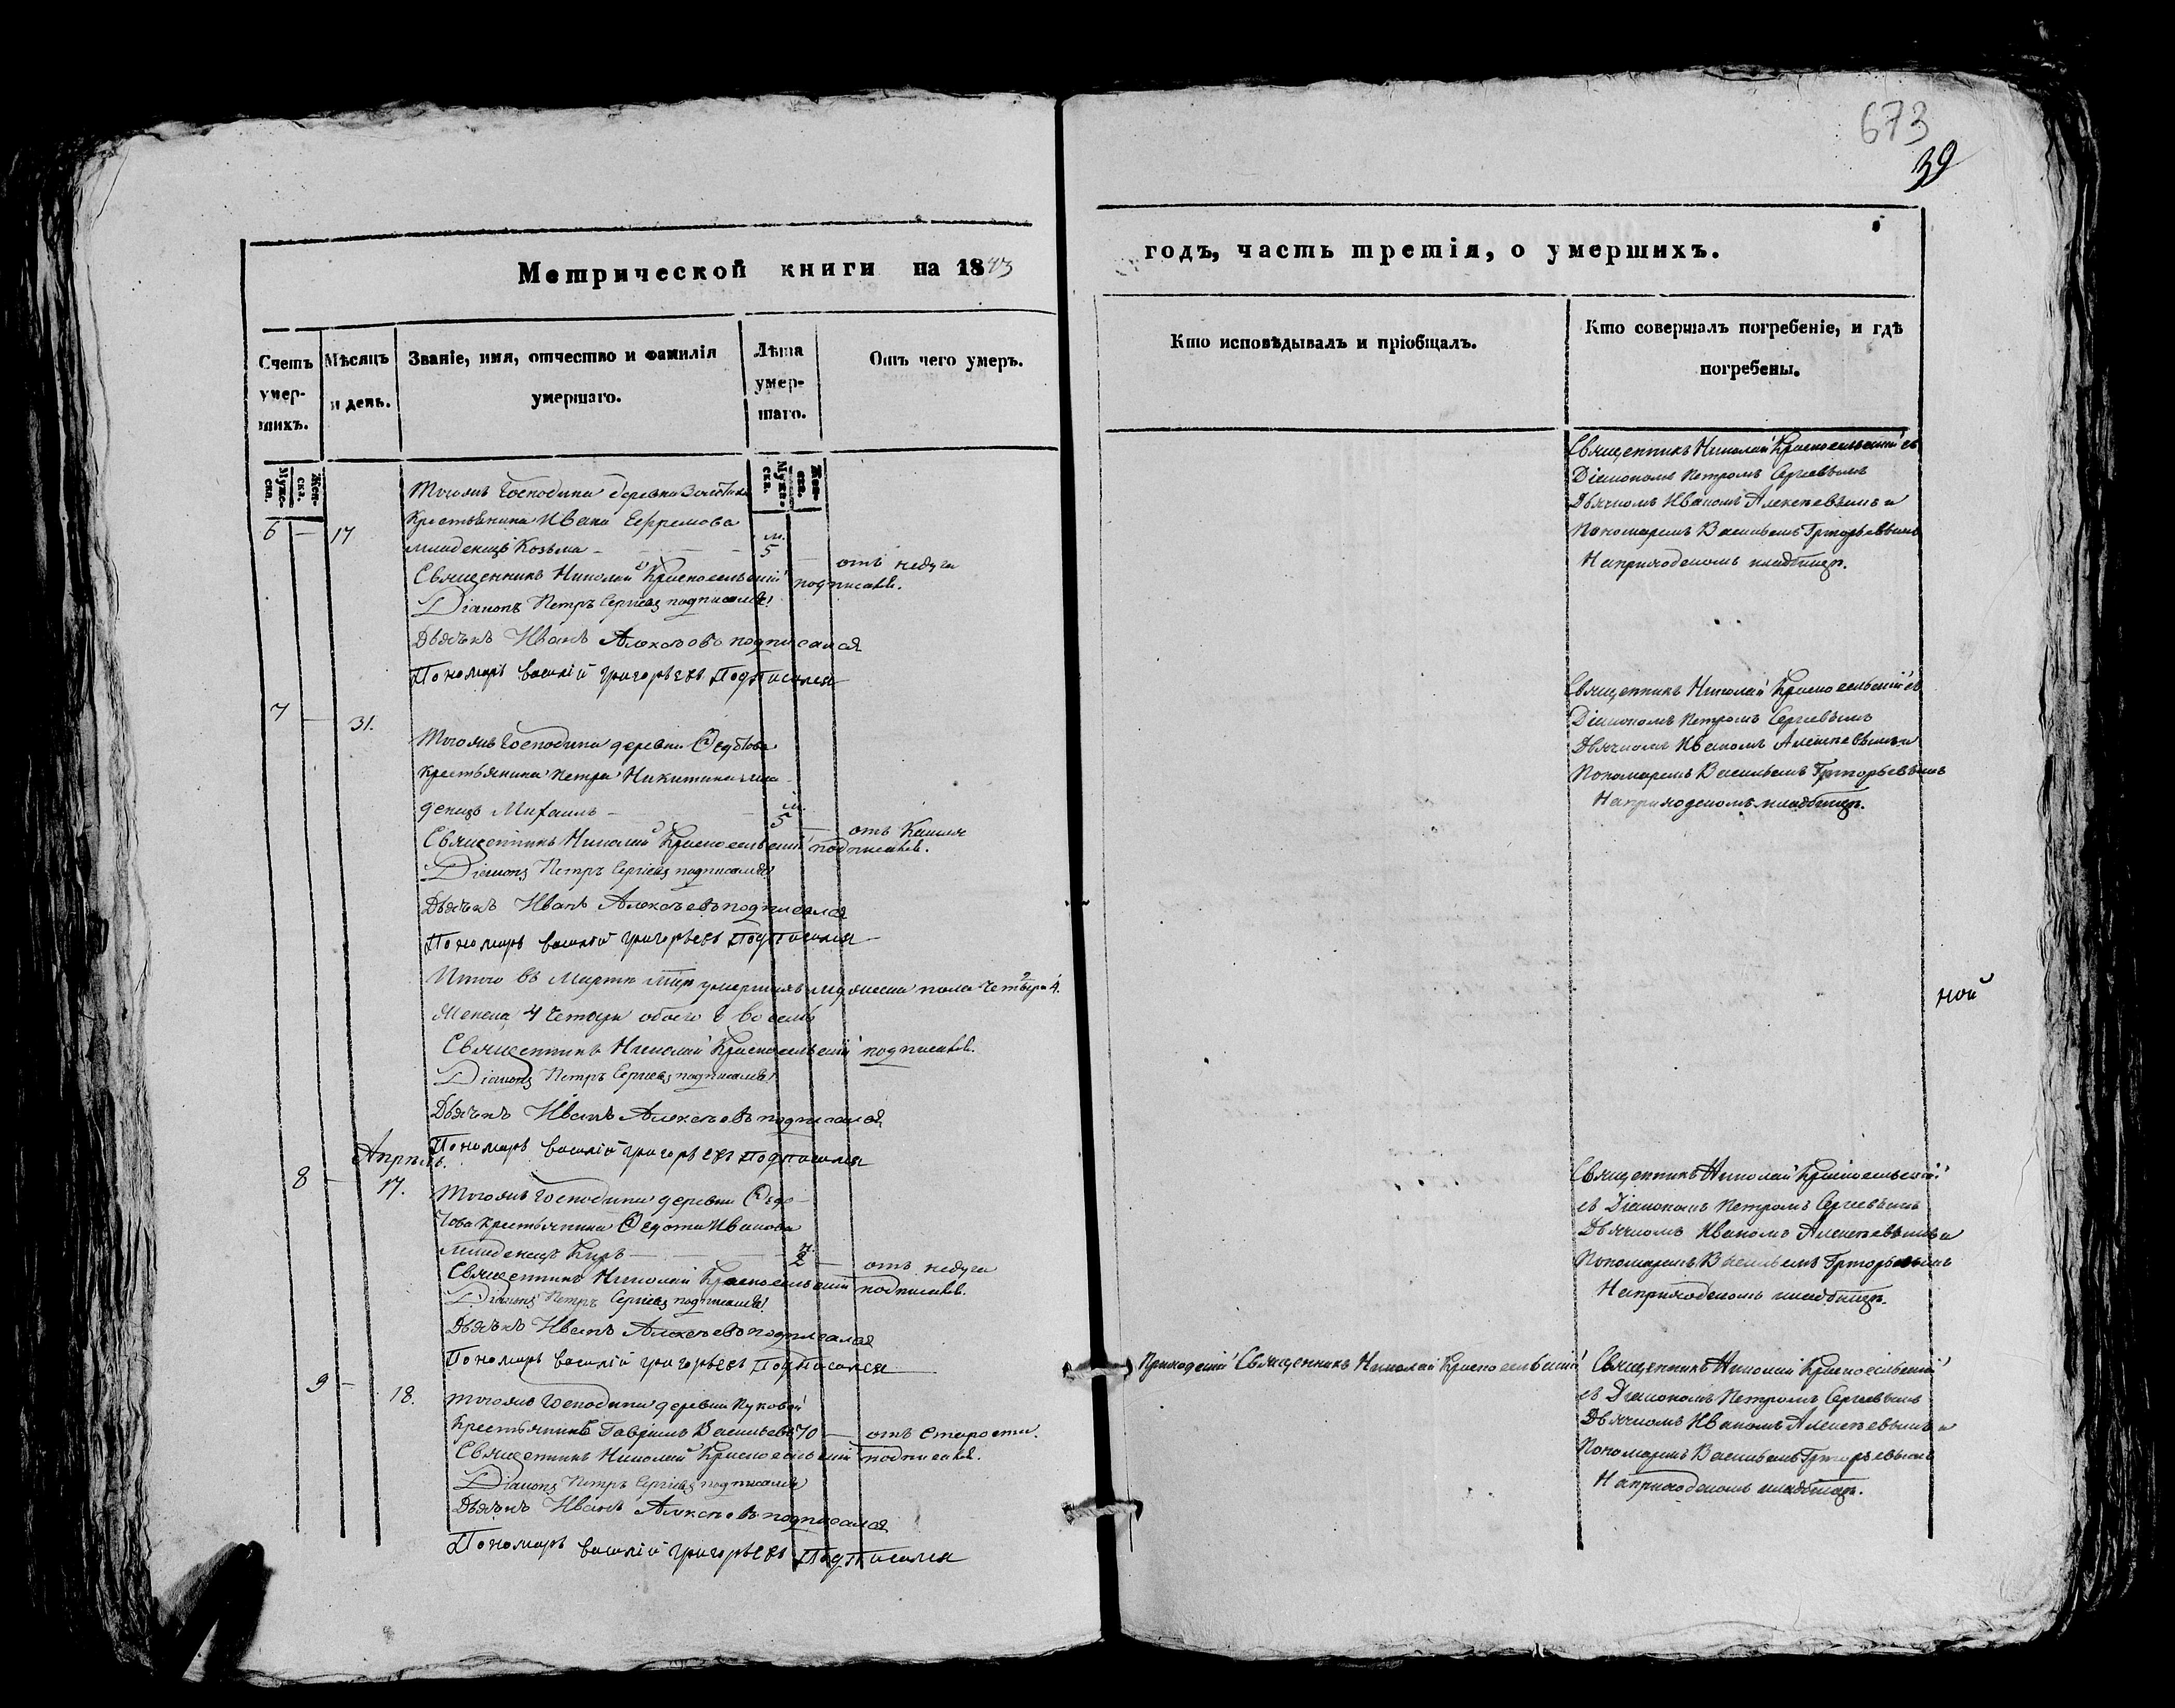 673
39
Метрической книги на 1843
годъ, часть третія, о умершихъ.
Счетъ умер-шихъ.
Мѣсяцъ и день.
Званіе, имя, отчество и фамилія умершаго.
Лѣта умер-шаго.
Отъ чего умеръ.
Кто исповѣдывалъ и пріобщалъ.
Кто совершалъ погребеніе, и гдѣ погребены.
Муже-ска.
Жен-ска.
Муже-ска.
Жен-ска.
Тогожъ Господина деревни
6 — 17
Крестьянина Ивана Ефремова
младенецъ Козьма — м. 5 — отъ недуга
Священникъ Николай Красносельскій подписался.
Діаконъ Петръ Сергіевъ подписался
Дьячекъ Иванъ Алексѣевъ подписался
Пономарь Василій Григорьевъ Подписался
Священникъ Николай Красносельскій съ
Діакономъ Петромъ Сергіевымъ
Дьячкомъ Иваномъ Алексѣевымъ и
Пономаремъ Васильемъ Григорьевымъ
На приходскомъ кладбищѣ.
7 — 31.
Тогожъ Господина деревни Ѳедотова
Крестьянина Петра Никитина мла-
денецъ Михаилъ — м. 5 — отъ Кашля
Священникъ Николай Красносельскій подписался.
Діаконъ Петръ Сергіевъ подписался
Дьячекъ Иванъ Алексѣевъ подписался
Пономарь Василій Григорьевъ Подписался
Священникъ Николай Красносельскій съ
Діакономъ Петромъ Сергіевымъ
Дьячкомъ Иваномъ Алексѣевымъ и
Пономаремъ Васильемъ Григорьевымъ
На приходскомъ кладбищѣ.
Итого въ Мартѣ умершихъ мужеска пола четыре 4.
Женска 4 четыре обоего 8 восемь
Священникъ Николай Красносельскій подписался.
Діаконъ Петръ Сергіевъ подписался
Дьячекъ Иванъ Алексѣевъ подписался
Пономарь Василій Григорьевъ Подписался
ной
Апрѣль.
8 — 17.
Тогожъ Господина деревни Ѳедо-
това Крестьянина Ѳедота Иванова
младенецъ Киръ — 2 — отъ недуга
Священникъ Николай Красносельскій подписался.
Діаконъ Петръ Сергіевъ подписался
Дьячекъ Иванъ Алексѣевъ подписался
Пономарь Василій Григорьевъ Подписался
Священникъ Николай Красносельскій
съ Діакономъ Петромъ Сергіевымъ
Дьячкомъ Иваномъ Алексѣевымъ и
Пономаремъ Васильемъ Григорьевымъ
На приходскомъ кладбищѣ.
9 — 18.
Тогожъ Господина деревни Пуковой
Крестьянинъ Гавріилъ Васильевъ 70 — отъ Старости.
Священникъ Николай Красносельскій подписался.
Діаконъ Петръ Сергіевъ подписался
Дьячекъ Иванъ Алексѣевъ подписался
Пономарь Василій Григорьевъ Подписался
Приходскій Священникъ Николай Красносельскій
Священникъ Николай Красносельскій
съ Діакономъ Петромъ Сергіевымъ
Дьячкомъ Иваномъ Алексѣевымъ и
Пономаремъ Васильемъ Григорьевымъ
На приходскомъ кладбищѣ.